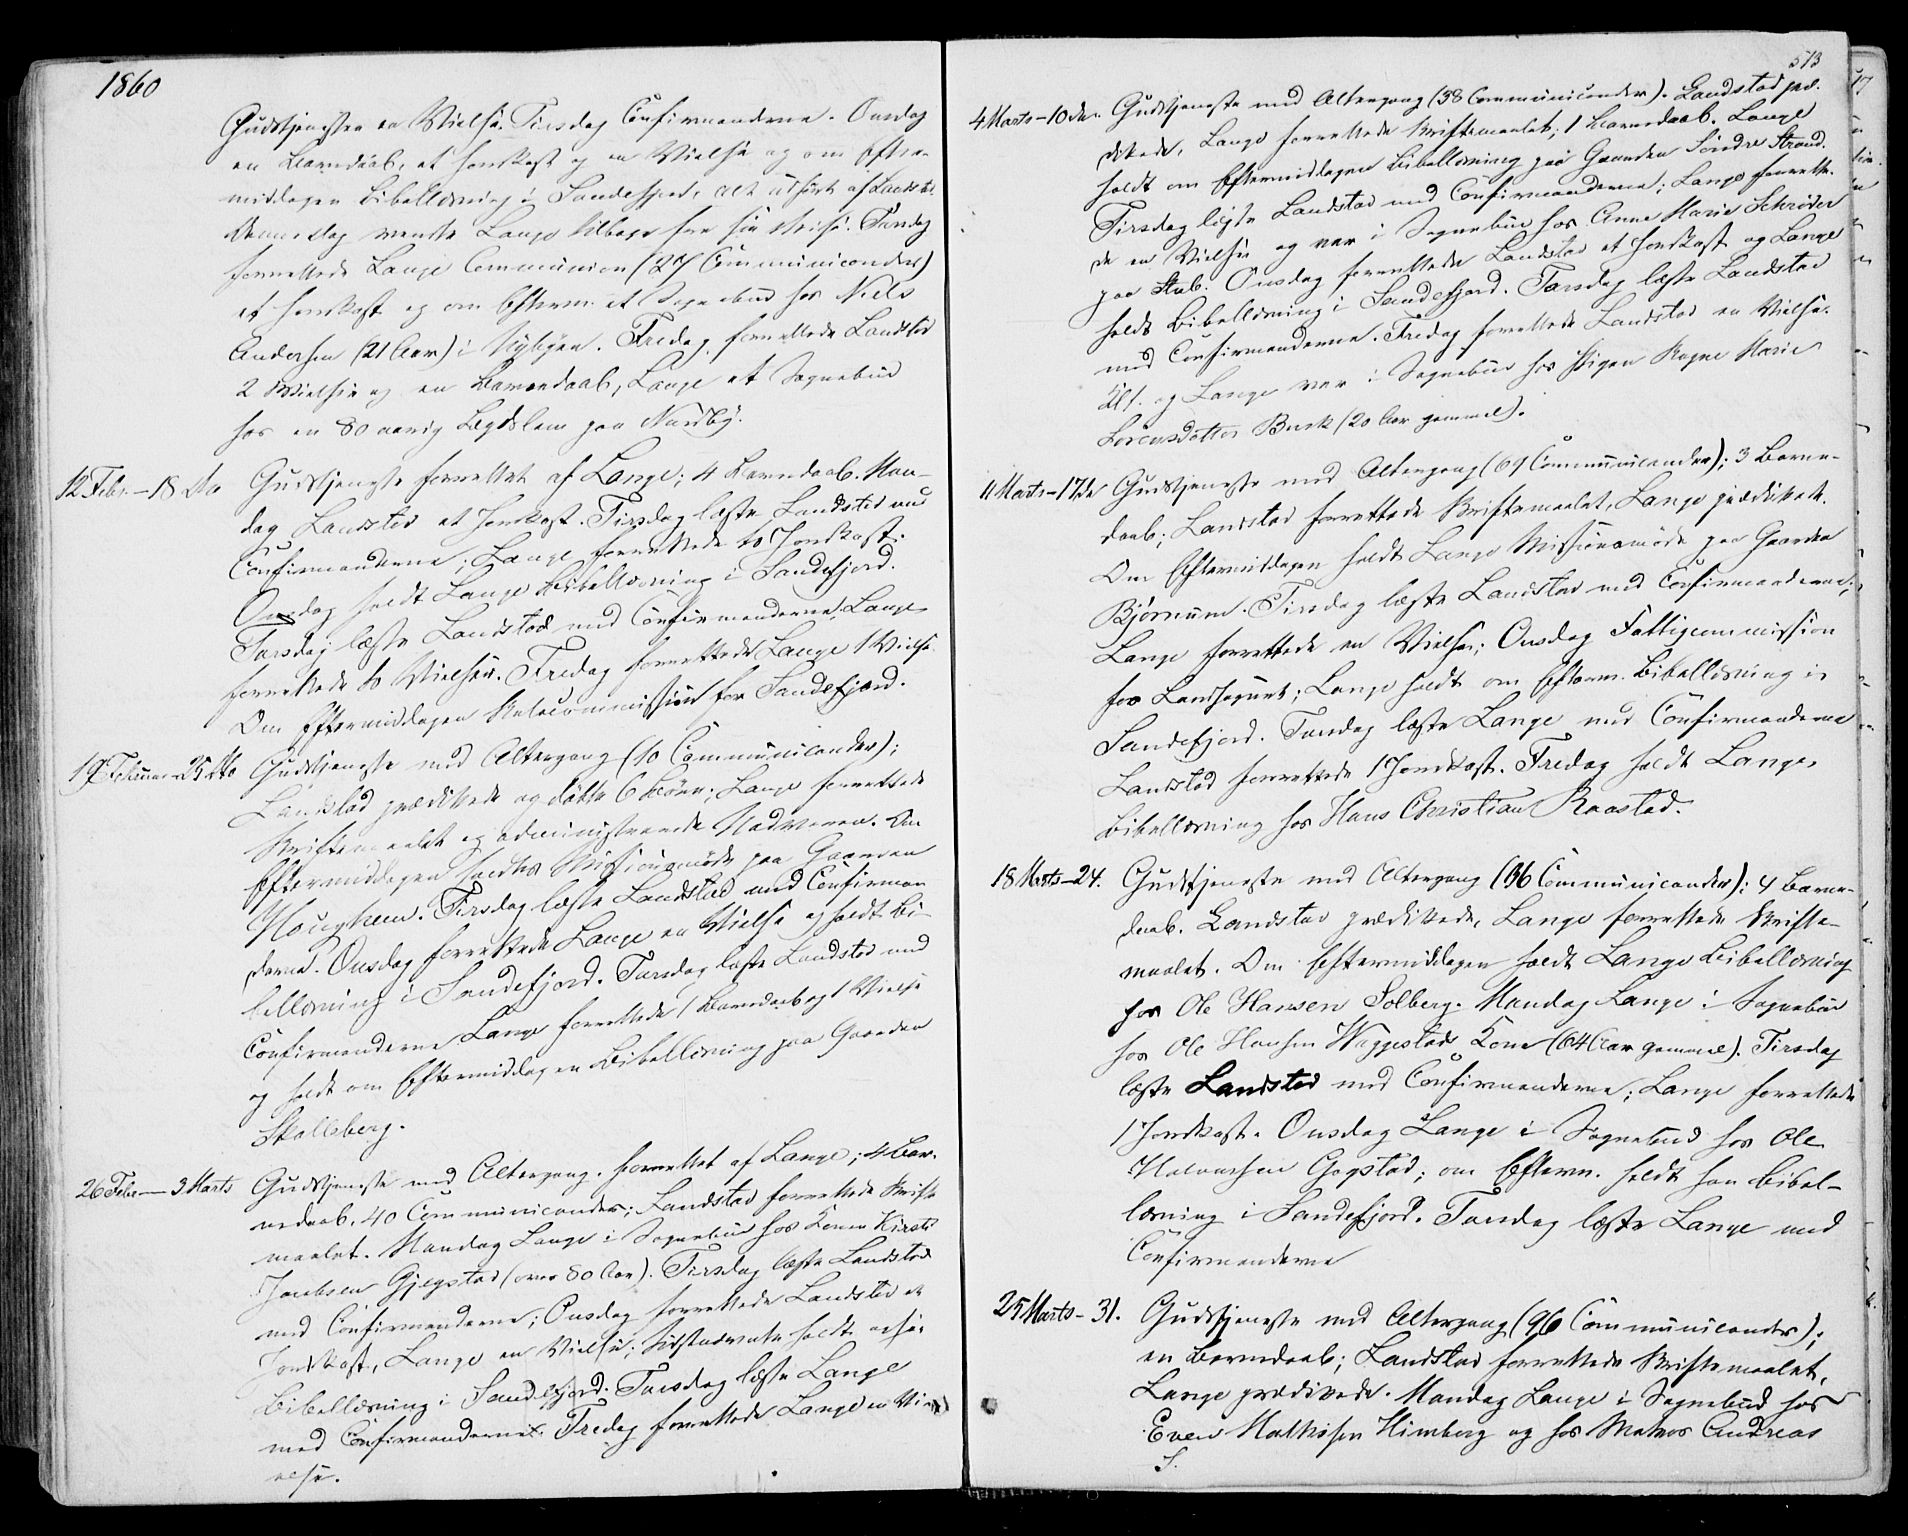 1860
Gudstjenesten en Vielse. Tirsdag Confirmanderne. Onsdag
en Barnedaab, et Jordkast og en Vielse og om Efter-
middagen Bibellæsning i Sandefjord, alt udført af Landstad.
Denne Dag vendte Lange tilbage fra sin Reise. Torsdag
forrettede Lange Communion (27 Communicander)
et Jordkast og om Efterm. et Sognebud hos Niels
Andersen (21 Aar) i Nybyen. Fredag forrettede Landstad
2 Vielser og en Barnedaab, Lange et Sognebud
hos en 80 aarig Lægdslem paa Nordby.
12 Febr. – 18 do Gudstjeneste forrettet af Lange; 4 Barnedaab. Man-
dag Landstad et Jordkast. Tirsdag læste Landstad med
Confirmanderne; Lange forrettede to Jordkast.
Onsdag holdt Lange Bibellæsning i Sandefjord.
Torsdag læste Landstad med Confirmanderne, Lange
forrettede to Vielser. Fredag forrettede Lange 1 Vielse.
Om Eftermiddagen Skolecommission for Sandefjord.
19 Februar – 25 do Gudstjeneste med Altergang (10 Communicander);
Landstad prædikede og døbte 6 Børn; Lange forrettede
Skriftemaalet og administrerede Nadveren. Om
Eftermiddagen holdtes Missionsmøde paa Gaarden
Hougheim. Tirsdag læste Landstad med Confirman
derne. Onsdag forrettede Lange en Vielse og holdt Bi-
bellæsning i Sandefjord. Torsdag læste Landstad med
Confirmanderne Lange forrettede 1 Barnedaab og 1 Vielse
og holdt om Eftermiddagen Bibellæsning paa Gaarden
Skalleberg.
26 Febr – 3 Marts Gudstjeneste med Altergang. forrettet af Lange; 4 Bar-
nedaab, 40 Communicander; Landstad forrettede Skrifte
maalet. Mandag Lange i Sognebud hos Konen Kirsti
Jacobsen Gjegstad (over 80 Aar). Tirsdag læste Landstad
med Confirmanderne; Onsdag forrettede Landstad et
Jordkast, Lange en Vielse; Sidstnævnte holdt ogsaa
Bibellæsning i Sandefjord. Torsdag læste Lange
med Confirmanderne. Fredag forrettede Lange en Vi-
else.
513
4 Marts – 10 de. Gudstjeneste med Altergang (38 Communicander). Landstad præ-
dikede, Lange forrettede Skriftemaalet; 1 Barnedaab. Lange
holdt om Eftermiddagen Bibellæsning paa Gaarden Søndre Strand.
Tirsdag læste Landstad med Confirmanderne; Lange forrette-
de en Vielse og var i Sognebud hos Anne Marie Schrøder
paa Stub. Onsdag forrettede Landstad et Jordkast og Lange
holdt Bibellæsning i Sandefjord. Torsdag læste Landstad
med Confirmanderne. Fredag forrettede Landstad en Vielse.
og Lange var i Sognebud hos Pigen Ragne Marie
Lorensdatter Busk (20 Aar gammel).
11 Marts – 17de Gudstjeneste med Altergang (69 Communicander); 3 Barne-
daab; Landstad forrettede Skriftemaalet, Lange prædikede.
Om Eftermiddagen holdt Lange Missionsmøde paa Gaarden
Bjørnum. Tirsdag læste Landstad med Confirmanderne;
Lange forrettede en Vielse; Onsdag Fattigcommission
for Landsognet; Lange holdt om Efterm. Bibellæsning i
Sandefjord. Torsdag læste Lange med Confirmanderne
Landstad forrettede 1 Jordkast. Fredag holdt Lange
Bibellæsning hos Hans Christian Raastad.
18 Marts – 24. Gudstjeneste med Altergang (36 Communicander); 4 Barne-
daab. Landstad prædikede, Lange forrettede Skrifte-
maalet. Om Eftermiddagen holdt Lange Bibellæsning
hos Ole Hansen Solberg. Mandag Lange i Sognebud
hos Ole Hansen Vaggestads Kone (64 Aar gammel). Tirsdag
læste Landstad med Confirmanderne; Lange forrettede
1 Jordkast. Onsdag Lange i Sognebud hos Ole
Halvorsen Gogstad; om Efterm. holdt han Bibel-
læsning i Sandefjord. Torsdag læste Lange med
Confirmanderne
25 Marts – 31. Gudstjeneste med Altergang (96 Communicander);
en Barnedaab; Landstad forrettede Skriftemaalet,
Lange prædikede. Mandag Lange i Sognebud hos
Even Mathisen Himberg og hos Matros Andreas
S.